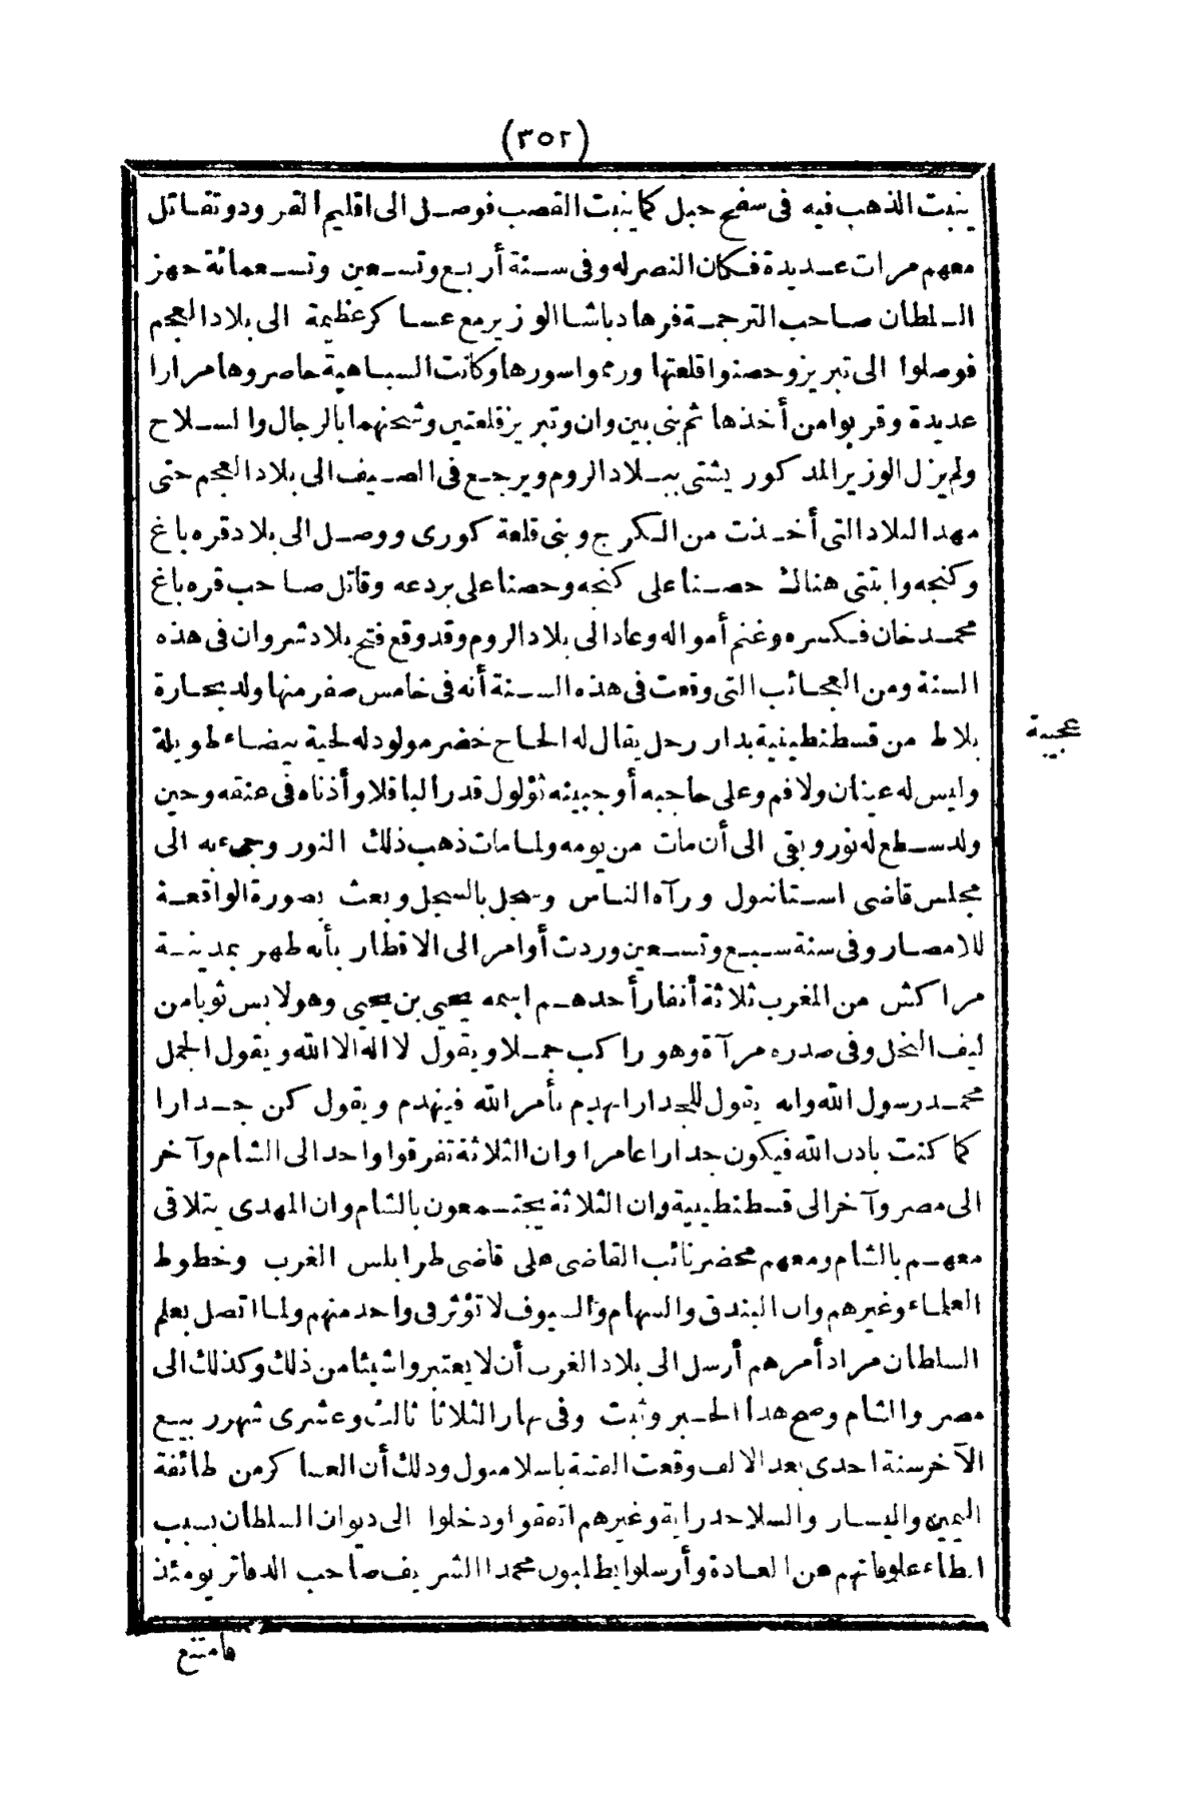 (٣٥٢)
ينبت الذهب فيه فى سفح جبل كما ينبت القصب فوصل الى اقليم القرود وتقاتل
معهم مرات عديدة فكان النصر له وفى سنة أربع وتسعين وتسعمائة جهز
السلطان صاحب الترجمة فرهاد باشا الوزير مع عساكر عظيمة الى بلاد العجم
فوصلوا الى تبريز وحصنوا قلعتها ورمموا سورها وكانت السباهية حاصروها مرارا
عديدة وقربوا من أخذها ثم بنى بين وان وتبريز قلعتين وشحنهما بالرجال والسلاح
ولم يزل الوزير المذكور يشتى ببلاد الروم ويرجع فى الصيف الى بلاد العجم حتى
مهد البلاد التى أخذت من الكرج وبنى قلعة كورى ووصل الى بلاد قره باغ
وكنجه وابتنى هناك حصنا على كنجه وحصنا على بردعه وقاتل صاحب قره باغ
محمد خان فكسره وغنم أمواله وعاد الى بلاد الروم وقد وقع فتح بلاد شروان فى هذه
السنة ومن العجائب التى وقعت فى هذه السنة أنه فى خامس صفر منها ولد بحارة
عجيبة
بلاط من قسطنطينية بدار رجل يقال له الحاج خضر مولود له لحية بيضاء طويلة
وليس له عينان ولا فم وعلى حاجبه أو جبينه ثؤلول قدر الباقلا وأذناه فى عنقه وحين
ولد سطع له نور وبقى الى أن مات من يومه ولما مات ذهب ذلك النور وجىء به الى
مجلس قاضى استانبول ورآه الناس وسجل بالسجل وبعث بصورة الواقعة
للامصار وفى سنة سبع وتسعين وردت أوامر الى الاقطار بأنه ظهر بمدينة
مراكش من المغرب ثلاثة أنفار أحدهم اسمه يحيى بن يحيى وهو لابس ثوبا من
ليف النخل وفى صدره مرآة وهو راكب جملا ويقول لا اله الا الله ويقول الجمل
محمد رسول الله وانه يقول للجدار انهدم بأمر الله فينهدم ويقول كن جدارا
كما كنت باذن الله فيكون جدارا عامرا وان الثلاثة تفرقوا واحد الى الشام وآخر
الى مصر وآخر الى قسطنطينية وان الثلاثة يجتمعون بالشام وان المهدى يتلاقى
معهم بالشام ومعهم محضر نائب القاضى على قاضى طرابلس الغرب وخطوط
العلماء وغيرهم وان البندق والسهام والسيوف لا تؤثر فى واحد منهم ولما اتصل بعلم
السلطان مراد أمرهم أرسل الى بلاد الغرب أن لا يعتبروا شيئا من ذلك وكذلك الى
مصر والشام وصح هذا الخبر وثبت وفى نهار الثلاثا ثالث وعشرى شهر ربيع
الآخر سنة احدى بعد الالف وقعت الفتنة باسلامبول وذلك أن العساكر من طائفة
اليمين واليسار والسلاحدراية وغيرهم اتفقوا ودخلوا الى ديوان السلطان بسبب
ابطاء علوفاتهم عن العادة وأرسلوا يطلبون محمدا الشريف صاحب الدفاتر يومئذ
فامتنع